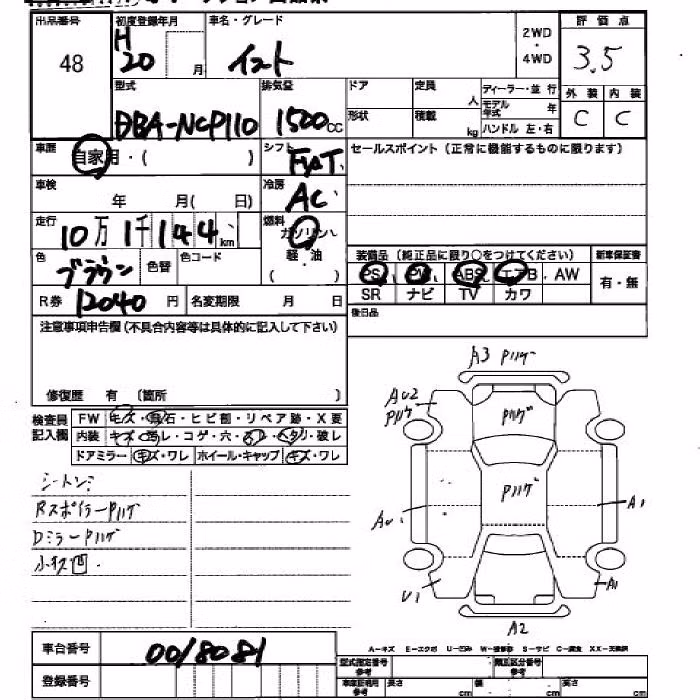 出品番号 初度登録年月 車名・グレード 2WD・4WD 評価点
48 H20 月 イスト 3.5
型式 排気量 ドア 定員 人 ディーラー・並行 外装 内装
DBA-NCP110 1500cc 形状 積載 kg モデル年式 年 C C
ハンドル 左・右
車歴 自家用・( ) シフト FAT セールスポイント(正常に機能するものに限ります)
車検 年 月( 日) 冷房 AC
走行 10万1千144km 燃料 ガソリン
色 ブラウン 色替 色コード 軽・油 ( ) 装備品(純正品に限り○をつけてください) 新車保証書
PS PW ABS エアB・AW 有・無
R券 12040円 名変期限 月 日 SR ナビ TV カワ
注意事項申告欄(不具合内容等は具体的に記入して下さい) 後日品
修復歴 有 〔箇所 〕
検査員記入欄 FW キズ・飛石・ヒビ割・リペア跡・X要
内装 キズ・ヨレ・コゲ・穴・ ・ヘタリ・破レ
ドアミラー キズ・ワレ ホイール・キャップ キズ・ワレ
Rスポイラーハゲ
Dミラーハゲ
小キズ凹.
A3 ハゲ
AU2
ハゲ
ハゲ
ハゲ
AU1 A1
U1 A1
A2
A-キズ E-エクボ U-凹み W-補修跡 S-サビ C-腐食 XX-交換済
車台番号 0018081 型式指定番号 参考 類別区分番号 参考
登録番号 車庫証明用 参考 長さ cm 幅 cm 高さ cm